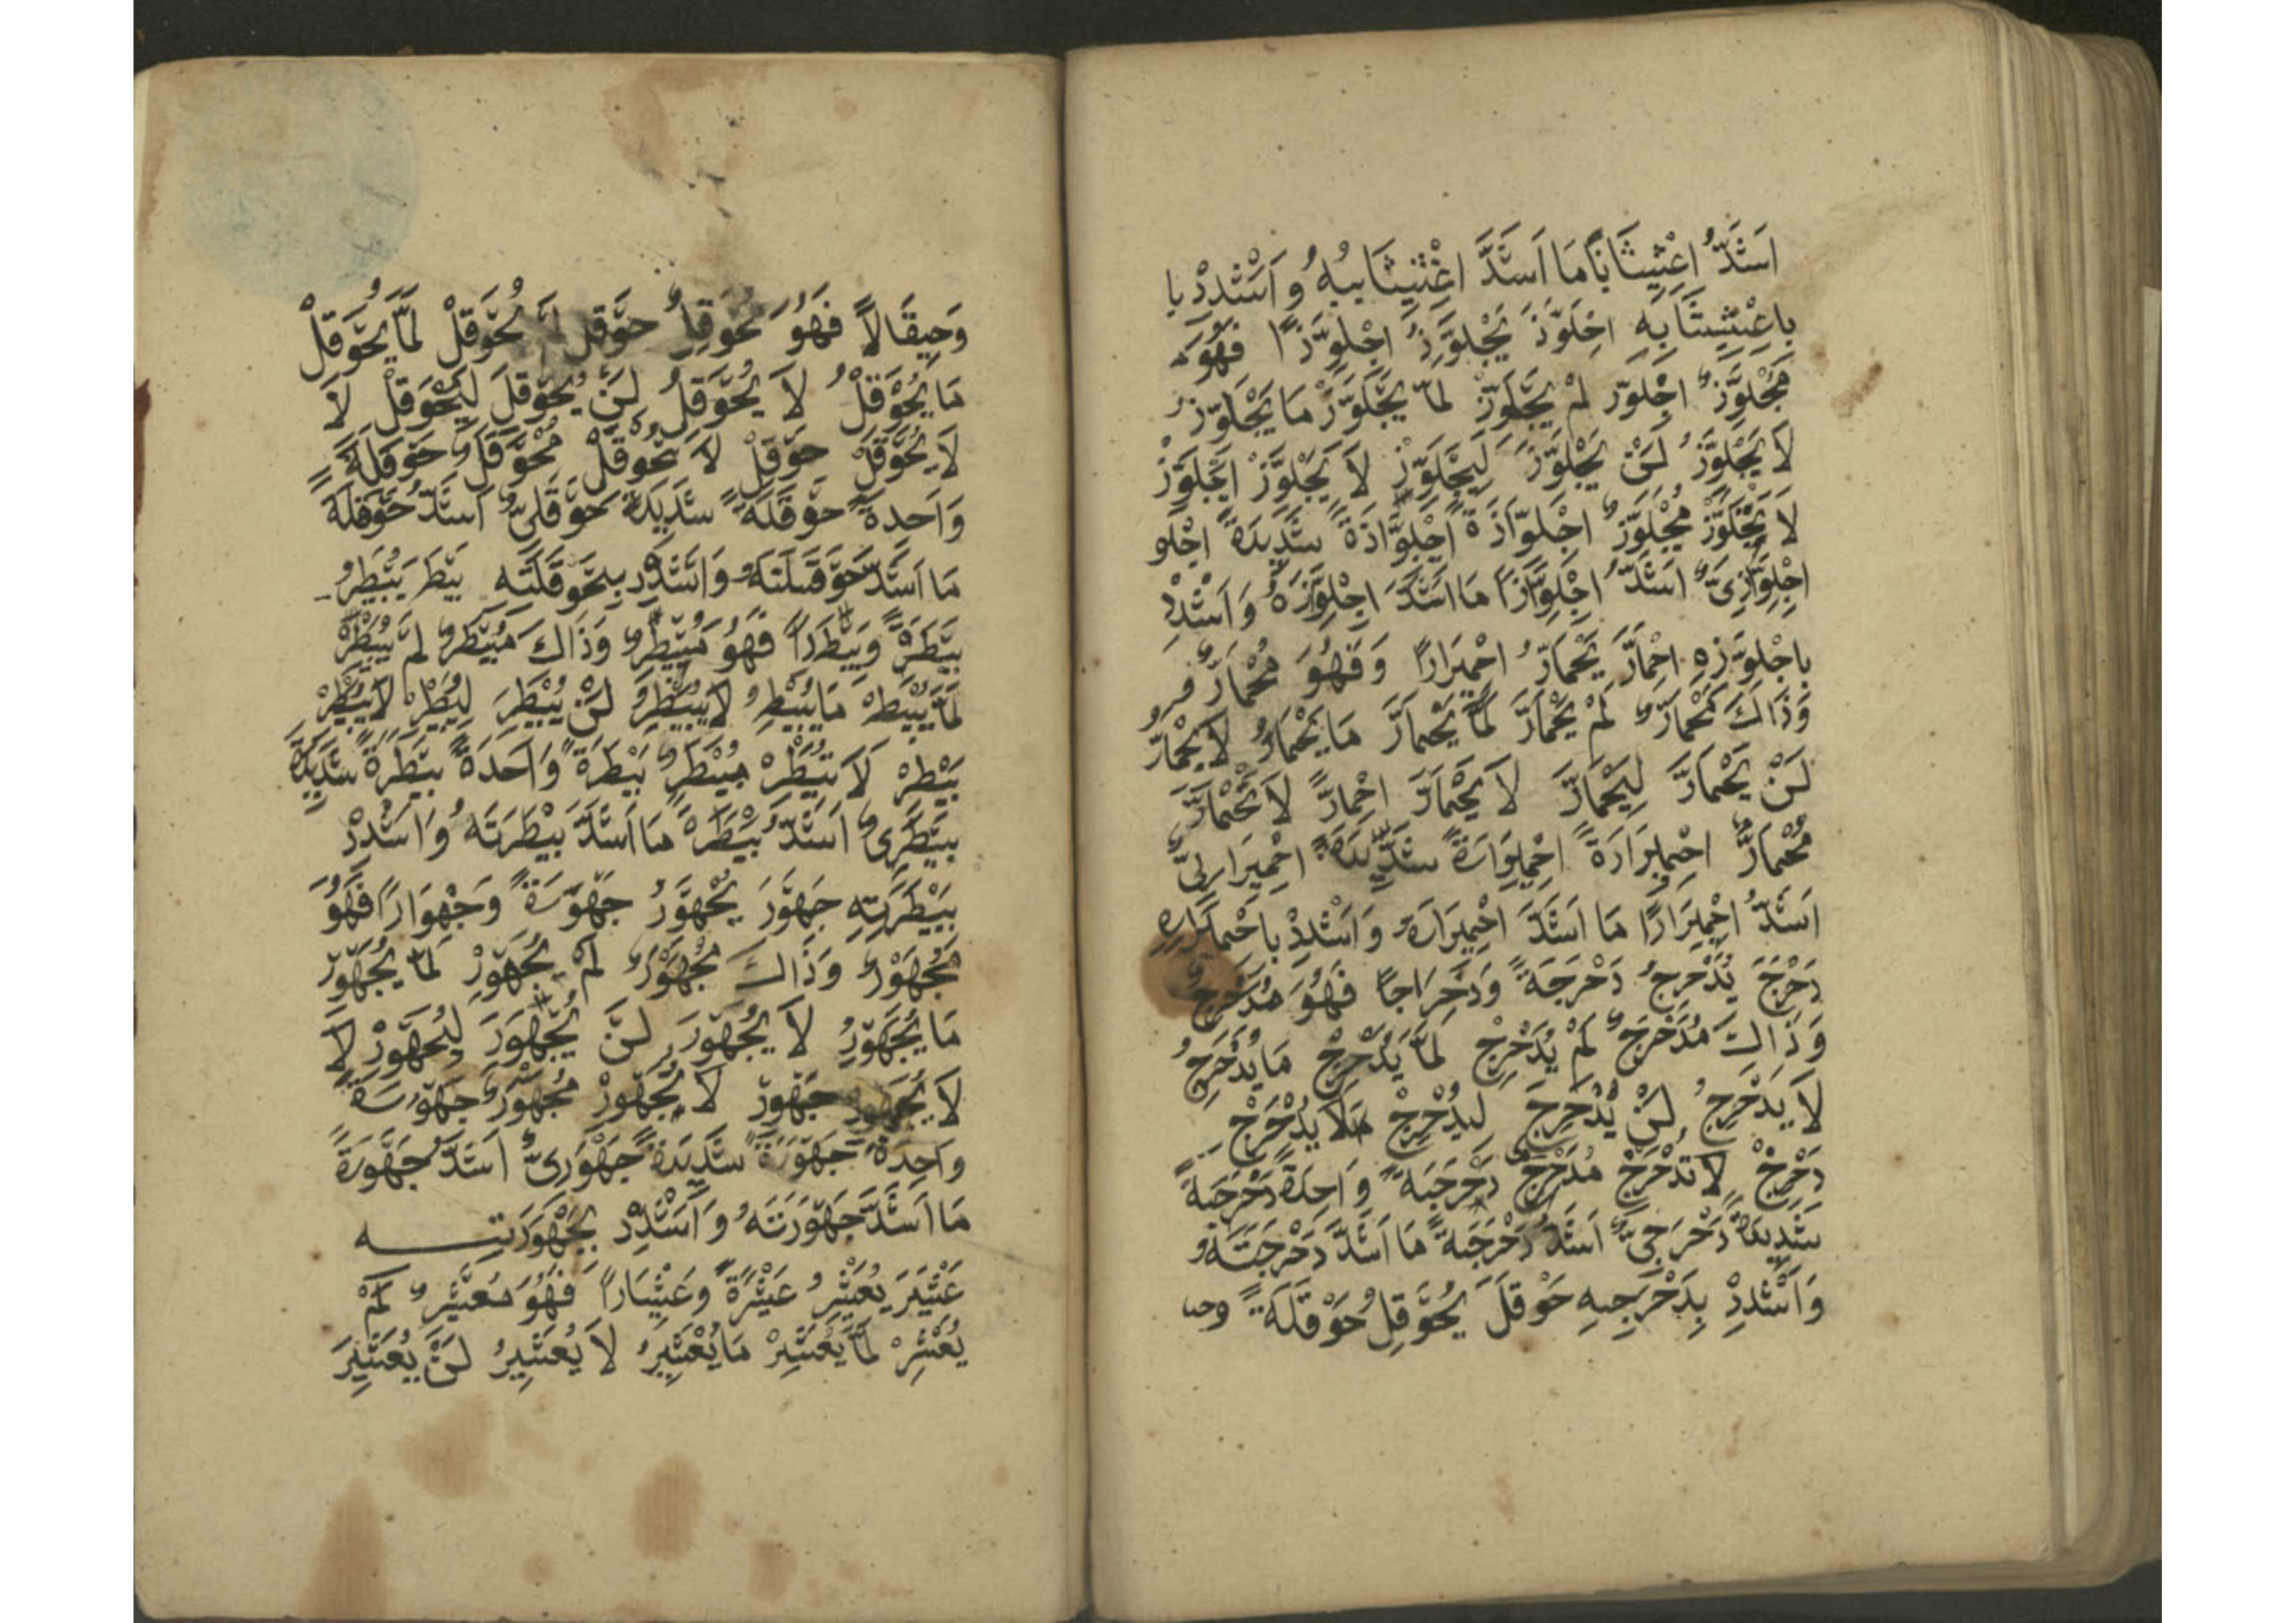 اَشَدُّ اِعْشِيشَابًا مَا اَشَدَّ اعْشِيشَابهُ وَاَشْدِدْ با
باِعْشِيشَابِهِ اِجْلَوَّذَ يَجْلَوِّذُ اِجْلِوَّذًا فَهُوَ
مُجْلَوِّذٌ اِجْلَوّذ لَمْ يَجْلَوِّذْ لمَّا يَجْلَوِّذْ مَا يَجْلَوِّذُ
لَا يَجْلَوِّذُ لَنْ يَجْلَوِّذَ لِيَجْلَوِّذْ لَا يَجْلَوِّذْ اِجْلَوِّذْ
لَا تَجْلَوِّذْ مُجْلَوَّذٌ اِجْلِوّاذَةً اِجْلِوَّاذَةً شَدِيدَةً اِجْلو
اِجْلِوَّاذِىٌّ اَشَدُّ اِجْلِوَّاذًا مَا اَشَدَّ اِجْلِوَّذَهُ وَاَشْدِدْ
بِاجْلِوَّذِهِ اِحْمَارَّ يَحْمَارُّ اِحْمِيرَارًا وَفَهُوَ مُحْمَارٌّ
وَذَاكَ مُحْمَارٌّ لَمْ يَحْمَارَّ لَمَّا يَحْمَارَّ مَا يَحْمَارُّ لَا يَحْمَارُّ
لَنْ يَحْمَارَّ لِيَحْمَارَّ لَا يَحْمَارَّ اِحْمَارَّ لَا تَحْمَارَّ
مُحْمَارٌّ اِحْمِيرَارَةً اِحْمِيرَارَةً شَدِيدَةً اِحْمِيرَارِىٌّ
اَشَدُّ اِحْمِيرَارًا مَا اَشَدَّ اِحْمِيرَارَهُ وَاَشْدِدْ باِحْمِيرَارِهِ
دَحْرَجَ يُدَحْرِجُ دَحْرَجَةً وَدِحْرَاجًا فَهُوَ مُدَحْرِجٌ
وَذَاكَ مُدَحْرَجٌ لَمْ يُدَحْرِجْ لَمَّا يُدَحْرِجْ مَا يُدَحْرِجُ
لَا يُدَحْرِجُ لَنْ يُدَحْرِجَ لِيُدَحْرِجْ لَا يُدَحْرِجْ
دَحْرِجْ لَا تُدَحْرِجْ مُدَحْرَجٌ دَحْرَجَةً وَاحِدَةً دَحْرَجَةً
شَدِيدَةً دَحْرَجِىٌّ اَشَدُّ دَحْرَجَةً مَا اَشَدَّ دَحْرَجَتَهُ
وَاَشْدِدْ بِدَحْرَجَتِهِ حَوْقَلَ يُحَوْقِلُ حَوْقَلَةً وحـ
وَحِيقَالًا فَهُوَ مُحَوْقِلٌ حَوْقَل لَمْ يُحَوْقِلْ لَمَّا يُحَوْقِلْ
مَا يُحَوْقِلُ لَا يُحَوْقِلُ لَنْ يُحَوْقِلَ لِيُحَوْقِلْ لَا
لَا يُحَوْقِلْ حَوْقِلْ لَا تُحَوْقِلْ مُحَوْقَلٌ حَوْقَلَةً
وَاحِدَةً حَوْقَلَةً شَدِيدَةً حَوْقَلِىٌّ اَشَدُّ حَوْقَلَةً
مَا اَشَدَّ حَوْقَلَتَهُ وَاَشْدِدْ بِحَوْقَلَتِهِ بَيْطَرَ يُبَيْطِرُ
بَيْطَرَةً وَبِيْطَارًا فَهُوَ مُبَيْطِرٌ وَذَاكَ مُبَيْطَرٌ لَمْ يُبَيْطِرْ
لَمَّا يُبَيْطِرْ مَا يُبَيْطِرُ لَا يُبَيْطِرُ لَنْ يُبَيْطِرَ لِيُبَيْطِرْ لَا يُبَيْطِرْ
بَيْطِرْ لَا تُبَيْطِرْ مُبَيْطَرٌ بَيْطَرَةً وَاحَدَةً بَيْطَرَةً شَدِيدَةً
بَيْطَرِىٌّ اَشَدُّ بَيْطَرَةً مَا اَشَدَّ بَيْطَرَتَهُ وَاَشْدِدْ
بِبَيْطَرَتِهِ جَهْوَرَ يُجَهْوِرُ جَهْوَرَةً وَجِهْوَارًا فَهُوَ
مُجَهْوِرٌ وَذَاكَ مُجَهْوَرٌ لَمْ يُجَهْوِرْ لَمَّا يُجَهْوِرْ
مَا يُجَهْوِرُ لَا يُجَهْوِرُ لَنْ يُجَهْوِرَ لِيُجَهْوِرْ لَا
لَا يُجَهْوِرْ جَهْوِرْ لَا تُجَهْوِرْ مُجَهْوَرٌ جَهْوَرَةً
وَاحِدَةً جَهْوَرَةً شَدِيدَةً جَهْوَرِىٌّ اَشَدُّ جَهْوَرَةً
مَا اَشَدَّ جَهْوَرَتَهُ وَاَشْدِدْ بِجَهْوَرَتِـــه
عَثْيَرَ يُعَثْيِرُ عَثْيَرَةً وَعِثْيَارًا فَهُوَ مُعَثْيِرٌ لَمْ
يُعَثْيِرْ لَمَّا يُعَثْيِرْ مَا يُعَثْيِرُ لَا يُعَثْيِرُ لَنْ يُعَثْيِرَ